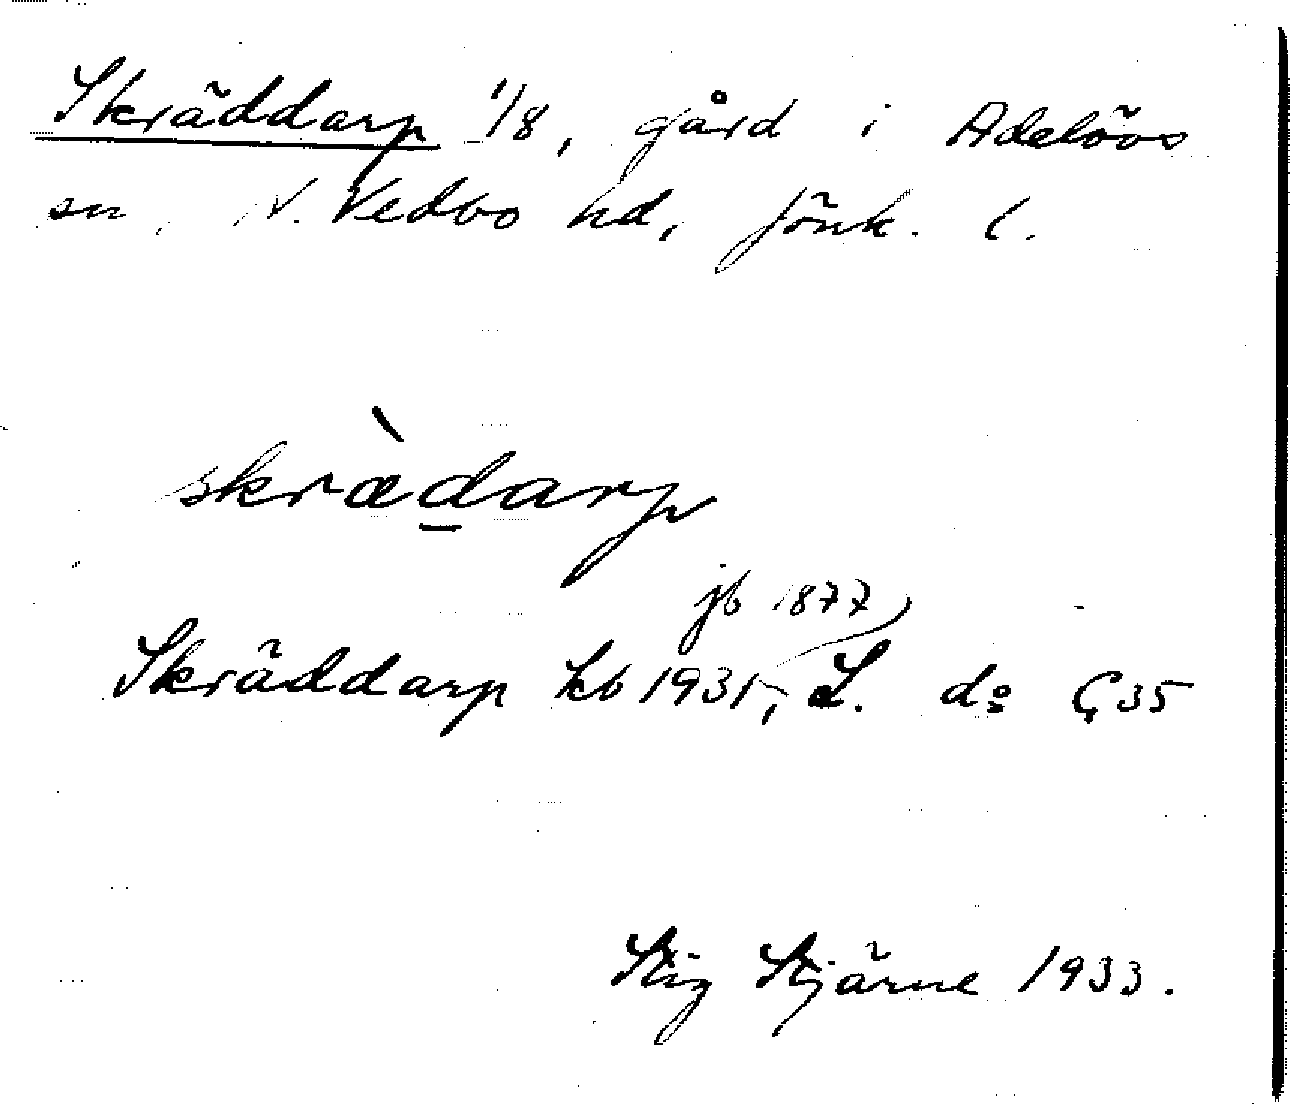 Skräddarp 1/8, gård i Adelövs
sn, N. Vedbo hd, Jönk. l.
skræ̀d̲arp
jb 1877,
Skräddarp kb 1931, L. d:o Ç35
Stig Stjärne 1933.